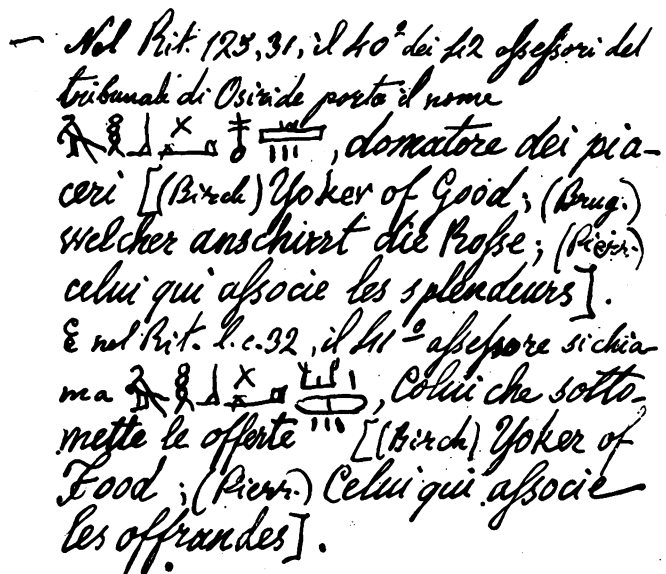 — Nel Rit. 125, 31, il 40° dei 42 assessori del
tribunale di Osiride porta il nome
, domatore dei pia-
ceri [(Birch) Yoker of Good; (Brug.)
welcher anschirrt die Rosse; (Pierr.)
celui qui associe les splendeurs].
E nel Rit. l.c. 32, il 41° assessore si chia-
ma , Colui che sotto-
mette le offerte [(Birch) Yoker of
Food; (Pierr.) Celui qui associe
les offrandes].